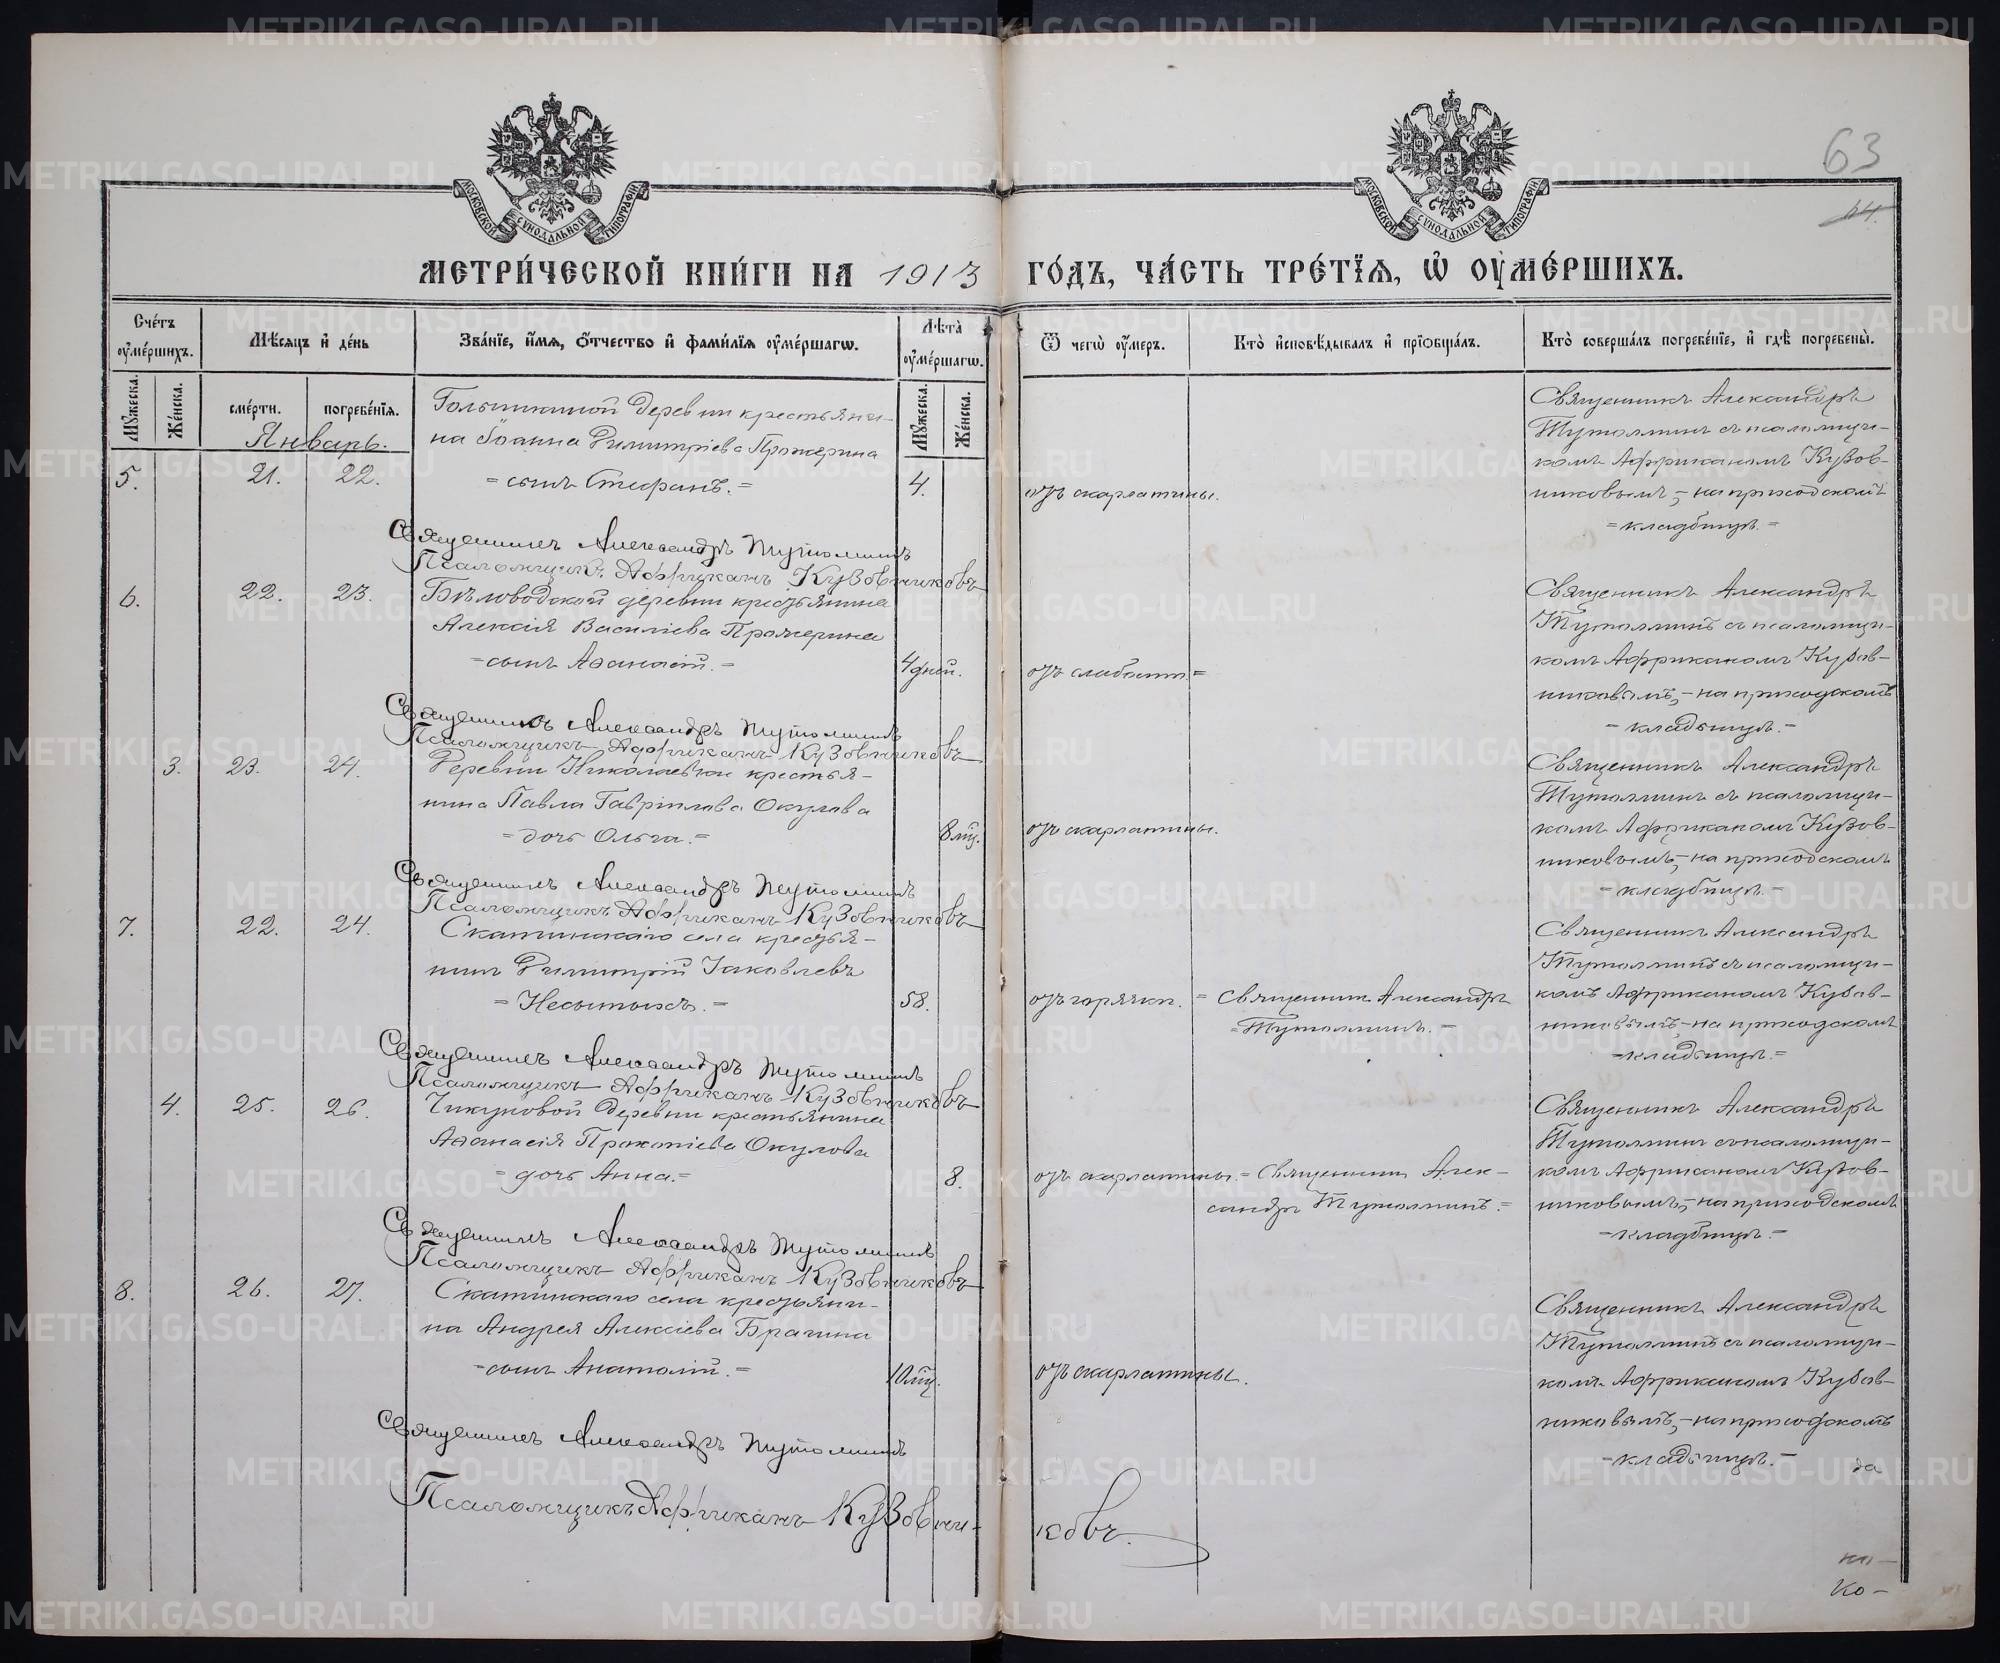 63
44.
МЕТРИ́ЧЕСКОЙ КНИ́ГИ НА 1913 ГО́ДЪ, ЧА́СТЬ ТРЕ́ТЇѦ, Ѡ҆ ОУ҆МЕ́РШИХЪ.
Сче́тъ оу҆ме́ршихъ.
Мѣ́сѧцъ и҆ де́нь
Зва́нїе, и҆́мѧ, ѻ҆́тчество и҆ фами́лїѧ оу҆ме́ршагѡ.
Лѣ́та оу҆ме́ршагѡ.
Ѿ чегѡ̀ оу҆́меръ.
Кто̀ и҆сповѣ́дывалъ и҆ прїѻбща́лъ.
Кто̀ соверша́лъ погребе́нїе, и҆ гдѣ̀ погребены̀.
Мꙋ́жеска.
Же́нска.
сме́рти.
погребе́нїѧ.
Мꙋ́жеска.
Же́нска.
Январь.
Голышкиной деревни крестьяни-
на Іоанна Димитріева Прожерина
5.
21.
22.
= сынъ Стефанъ. =
4.
отъ скарлатины.
Священникъ Александръ
Тутолминъ съ псаломщи-
комъ Африканомъ Кузов-
никовымъ, - на приходскомъ
= кладбищѣ. =
Священникъ Александръ Тутолминъ
Псаломщикъ Африканъ Кузовниковъ
6.
22.
23.
Бѣловодской деревни крестьянина
Алексія Василіева Прожерина
= сынъ Аѳанасій. =
4 дней.
отъ слабости. =
Священникъ Александръ
Тутолминъ съ псаломщи-
комъ Африканомъ Кузов-
никовымъ, - на приходскомъ
= кладбищѣ. =
Священникъ Александръ Тутолминъ
Псаломщикъ Африканъ Кузовниковъ
3.
23.
24.
Деревни Николаевки крестья-
нина Павла Гавріилова Окулова
= дочь Ольга. =
8 мц.
отъ скарлатины.
Священникъ Александръ
Тутолминъ съ псаломщи-
комъ Африканомъ Кузов-
никовымъ, - на приходскомъ
= кладбищѣ. =
Священникъ Александръ Тутолминъ
Псаломщикъ Африканъ Кузовниковъ
7.
22.
24.
Скатинскаго села крестья-
нинъ Димитрій Іаковлевъ
= Несытыхъ. =
58.
отъ горячки. =
Священникъ Александръ
= Тутолминъ. =
Священникъ Александръ
Тутолминъ съ псаломщи-
комъ Африканомъ Кузов-
никовымъ, - на приходскомъ
= кладбищѣ. =
Священникъ Александръ Тутолминъ
Псаломщикъ Африканъ Кузовниковъ
4.
25.
26.
Чикуновой деревни крестьянина
Аѳанасія Прокопіева Окулова
= дочь Анна. =
8.
отъ скарлатины. =
Священникъ Алек-
сандръ Тутолминъ. =
Священникъ Александръ
Тутолминъ съ псаломщи-
комъ Африканомъ Кузов-
никовымъ, - на приходскомъ
= кладбищѣ. =
Священникъ Александръ Тутолминъ
Псаломщикъ Африканъ Кузовниковъ
8.
26.
27.
Скатинскаго села крестьяни-
на Андрея Алексіева Брагина
= сынъ Анатолій. =
10 мц.
отъ скарлатины.
Священникъ Александръ
Тутолминъ съ псаломщи-
комъ Африканомъ Кузов-
никовымъ, - на приходскомъ
= кладбищѣ. =
Священникъ Александръ Тутолминъ
Псаломщикъ Африканъ Кузовни-
ковъ.
да
ко-
METRIKI.GASO-URAL.RU